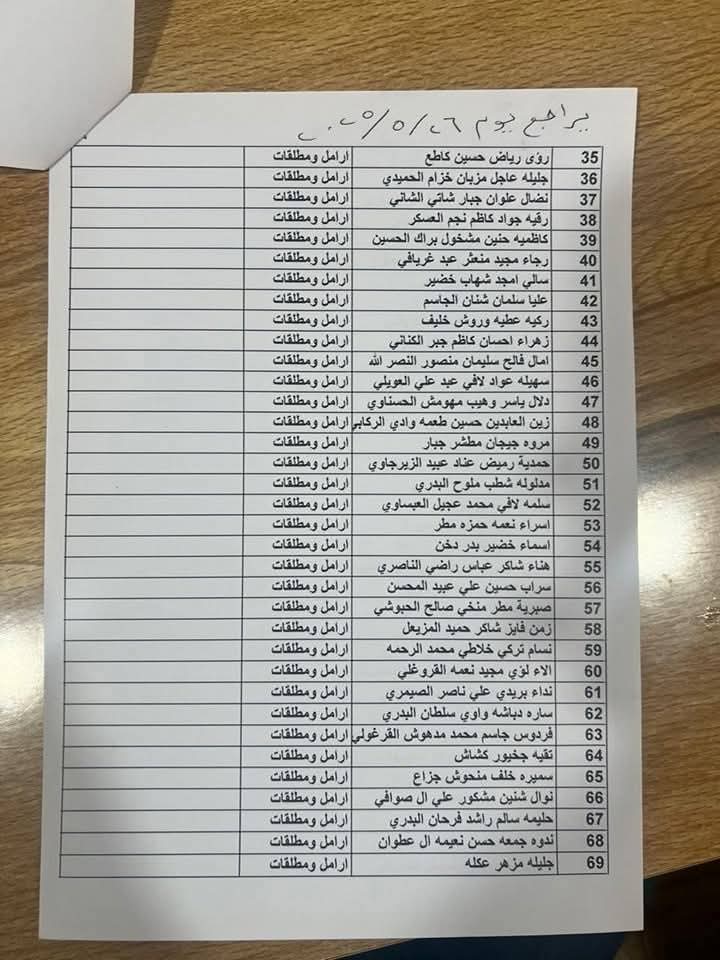 يراجع يوم ٢٦/٥/٢٠٢٥
35 رؤى رياض حسين كاطع ارامل ومطلقات
36 جليله عاجل مزبان خزام الحميدي ارامل ومطلقات
37 نضال علوان جبار شاتي الشاني ارامل ومطلقات
38 رقيه جواد كاظم نجم العسكر ارامل ومطلقات
39 كاظميه حنين مشخول براك الحسين ارامل ومطلقات
40 رجاء مجيد منعثر عبد غريافي ارامل ومطلقات
41 سالي امجد شهاب خضير ارامل ومطلقات
42 عليا سلمان شنان الجاسم ارامل ومطلقات
43 ركيه عطيه وروش خليف ارامل ومطلقات
44 زهراء احسان كاظم جبر الكناني ارامل ومطلقات
45 امال فالح سليمان منصور النصر الله ارامل ومطلقات
46 سهيله عواد لافي عبد علي العويلي ارامل ومطلقات
47 دلال ياسر وهيب مهومش الحسناوي ارامل ومطلقات
48 زين العابدين حسين طعمه وادي الركابي ارامل ومطلقات
49 مروه جيجان مطشر جبار ارامل ومطلقات
50 حمدية رميض عناد عبيد الزيرجاوي ارامل ومطلقات
51 مدلوله شطب ملوح البدري ارامل ومطلقات
52 سلمه لافي محمد عجيل العبساوي ارامل ومطلقات
53 اسراء نعمه حمزه مطر ارامل ومطلقات
54 اسماء خضير بدر دخن ارامل ومطلقات
55 هناء شاكر عباس راضي الناصري ارامل ومطلقات
56 سراب حسين علي عبيد المحسن ارامل ومطلقات
57 صبرية مطر منخي صالح الحبوشي ارامل ومطلقات
58 زمن فايز شاكر حميد المزيعل ارامل ومطلقات
59 نسام تركي خلاطي محمد الرحمه ارامل ومطلقات
60 الاء لؤي مجيد نعمه القروغلي ارامل ومطلقات
61 نداء بريدي علي ناصر الصيمري ارامل ومطلقات
62 ساره دباشه واوي سلطان البدري ارامل ومطلقات
63 فردوس جاسم محمد مدهوش القرغولي ارامل ومطلقات
64 تقيه جخيور كشاش ارامل ومطلقات
65 سميره خلف منحوش جزاع ارامل ومطلقات
66 نوال شنين مشكور علي ال صوافي ارامل ومطلقات
67 حليمه سالم راشد فرحان البدري ارامل ومطلقات
68 ندوه جمعه حسن نعيمه ال عطوان ارامل ومطلقات
69 جليله مزهر عكله ارامل ومطلقات